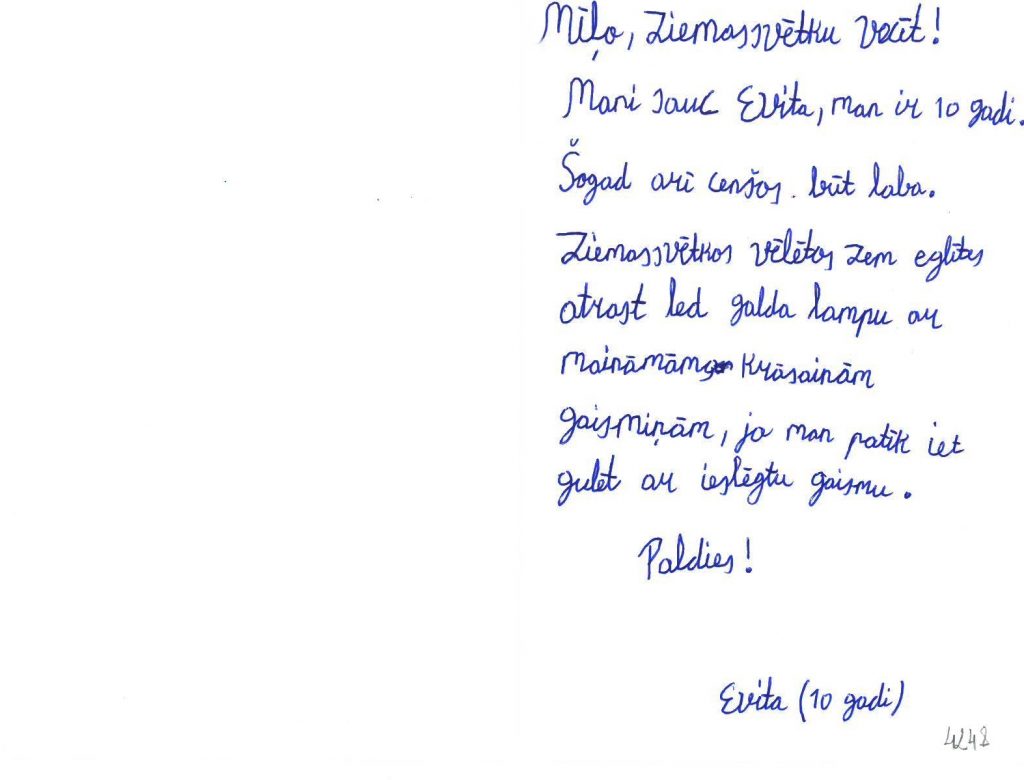 Mīļo, Ziemassvētku vecīt!
Mani sauc Evita, man ir 10 gadi.
Šogad arī cenšos būt laba.
Ziemassvētkos vēlētos zem eglītes
atrast led galda lampu ar
maināmām krāsainām
gaismiņām, jo man patīk iet
gulēt ar ieslēgtu gaismu.
Paldies!
Evita (10 gadi)
4248